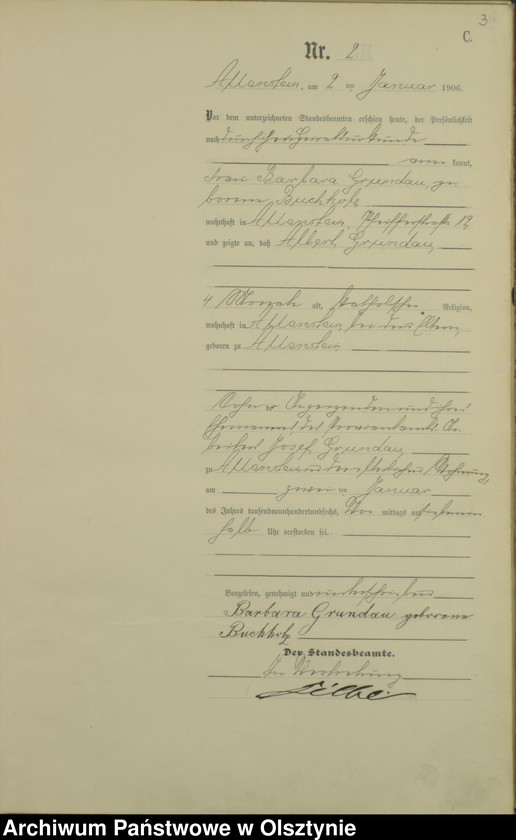 3
C.
Nr. 2
Allenstein, am 2 ten Januar 1906.
Vor dem unterzeichneten Standesbeamten erschien heute, der Persönlichkeit
nach durch Heiratsurkunde
anerkannt,
Frau Barbara Grundau, ge
borene Buchholz
wohnhaft in Allenstein, Pfeifferstraße 12,
und zeigte an, daß Albert Grundau,
4 Monate alt, katholischer Religion,
wohnhaft in Allenstein, bei den Eltern,
geboren zu Allenstein
Sohn der Anzeigenden und ihres
Ehemannes des Proviantamts Ar
beiters Josef Grundau
zu Allenstein in der Wohnung,
am zwei ten Januar
des Jahres tausendneunhundertundsechs, Vor mittags um sieben ein
halb Uhr verstorben sei.
Vorgelesen, genehmigt und unterschrieben
Barbara Grundau geborene
Buchholz
Der Standesbeamte.
In Vertretung
Archiwum Państwowe w Olsztynie